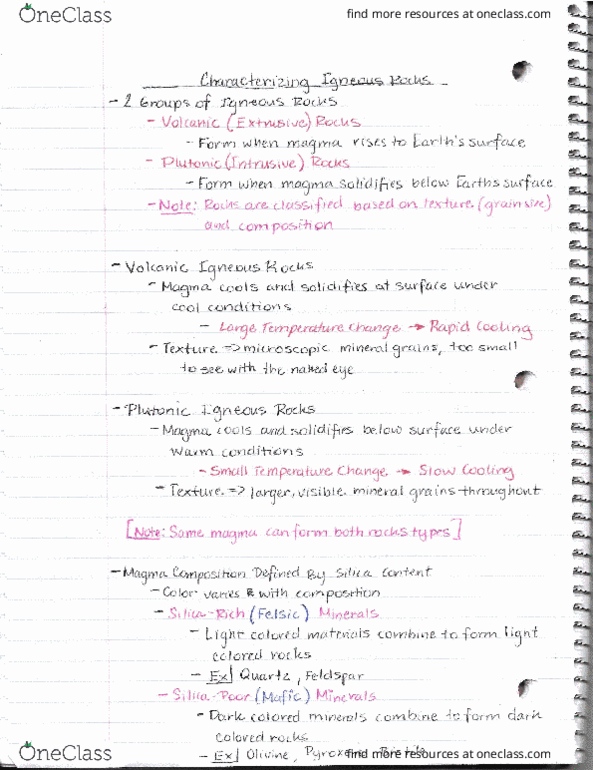 OneClass
find more resources at oneclass.com
Characterizing Igneous Rocks
- 2 Groups of Igneous Rocks
- Volcanic (Extrusive) Rocks
- Form when magma rises to Earth's surface
- Plutonic (Intrusive) Rocks
- Form when magma solidifies below Earths surface
- Note: Rocks are classified based on texture (grain size)
and composition
- Volcanic Igneous Rocks
- Magma cools and solidifies at surface under
cool conditions
- Large Temperature Change → Rapid Cooling
- Texture => microscopic mineral grains, too small
to see with the naked eye
- Plutonic Igneous Rocks
- Magma cools and solidifies below surface under
warm conditions
- Small Temperature Change → Slow Cooling
- Texture => larger, visible mineral grains throughout
[Note: Same magma can form both rocks types]
- Magma Composition Defined By Silica Content
- Color varies with composition
- Silica-Rich (Felsic) Minerals
- Light colored materials combine to form light
colored rocks
- Ex| Quartz, Feldspar
- Silica-Poor (Mafic) Minerals
- Dark colored minerals combine to form dark
colored rocks
- Ex| Olivine, Pyroxene,
OneClass
find more resources at oneclass.com